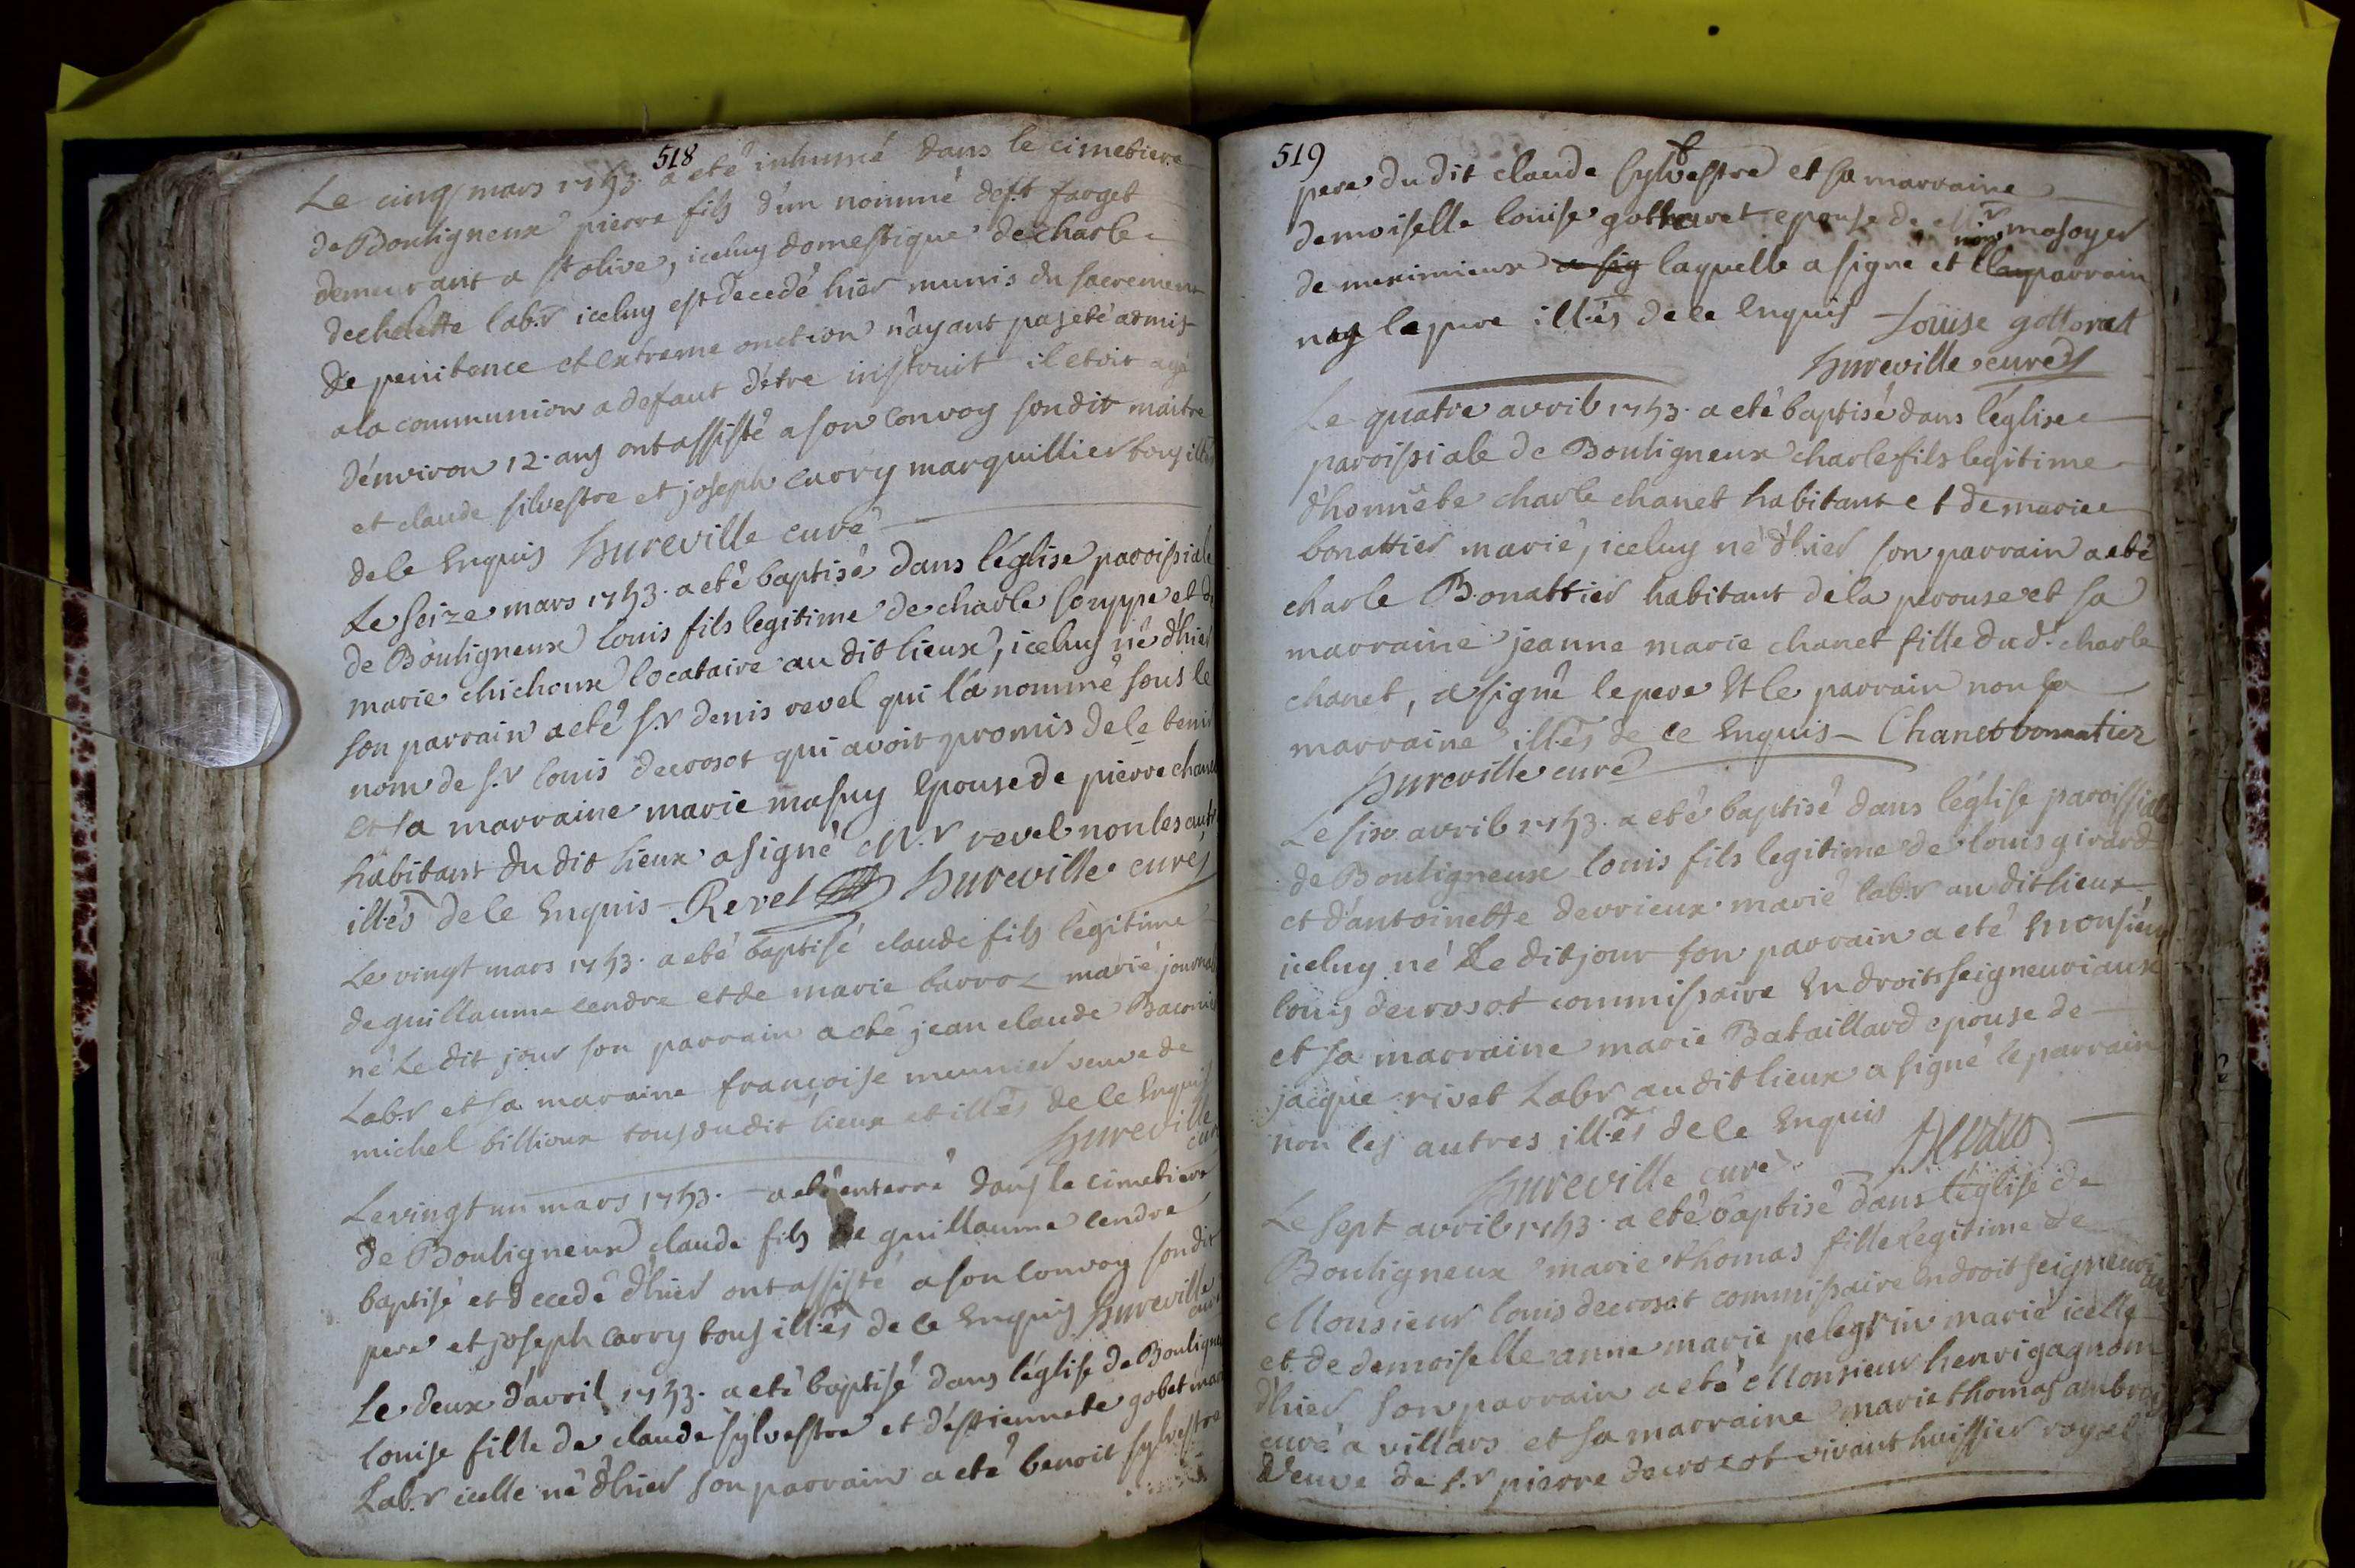 518
Le cinq mars 1753. a eté inhumé dans le cimetiere
de Bouligneux pierre fils d'un nommé deft farget
demeurant a st olive, iceluy domestique de charle
dechelette lab.r iceluy est decedé hier munis du sacrement
de penitence et extreme onction n'ayant pas eté admis
a la communion a defaut d'être instruit il etoit agé
d'environ 12. ans ont assisté a son convoy son dit maitre
et claude silvestre et joseph carry marquillier tous illés
de le Enquis hureville curé
Le seize mars 1753. a eté baptisé dans l'église paroissiale
de Bouligneux louis fils legitime de charle souppe et de
marie chichoux locataire au dit lieux, iceluy né d'hier
son parrain a eté s.r denis revel qui l'a nommé sous le
nom de s.r louis decrosot qui avoit promis de le tenir
et sa marraine marie masuy epouse de pierre chanet
habitant du dit lieux a signé M.r revel non les autres
illés de le Enquis Revel hureville curé
Le vingt mars 1753. a eté baptisé claude fils legitime
de guillaume cendre et de marie barroz marié journal
né Le dit jour son parrain a eté jean claude Baconnier
Lab.r et sa maraine françoise meunier veuve de
michel billioux tous du dit lieux et illés de le Enquis
hureville curé
Le vingt un mars 1753. a eté enterré dans le cimetiere
de Bouligneux claude fils de guillaume cendre
baptisé et decedé d'hier ont assisté a son convoy son dit
pere et joseph carry tous illés de le Enquis hureville curé
Le deux d'avril 1753. a eté baptisé dans l'église de Bouligneux
louise fille de claude sylvestre et d'estiennete gobet mariés
Lab.r icelle né d'hier son parrain a eté benoit sylvestre
519
pere du dit claude sylvestre et sa marraine
demoiselle louise gottaret epouse de s.r masoyer
de meximieux a sig laquelle a signe et parrain
ny le pere illés de le Enquis Louise gotterat
hureville curé
Le quatre avril 1753. a eté baptisé dans l'église
paroissiale de Bouligneux charle fils legitime
d'honnête charle chanet habitant et de marie
bonattier marié, iceluy né d'hier son parrain a eté
charle Bonattier habitant de la perouse et sa
marraine jeanne marie chanet fille du d. charle
chanet, a signé le pere et le parrain non la
marraine illés de ce Enquis Chanet bonnatier
hureville curé
Le six avril 1753. a eté baptisé dans l'église paroissiale
de Bouligneux louis fils legitime de louis girard
et d'antoinette devrieux marié lab.r au dit lieux
iceluy né Le dit jour son parrain a eté Monsieur
louis decrosot commissaire En droits seigneuriaux
et sa marraine marie Bataillard epouse de
jacque rivet Labr au dit lieux a signé le parrain
non les autres illés de le Enquis
hureville curé
Le sept avril 1753. a eté baptisé dans l'église de
Bouligneux marie thomas fille legitime de
Monsieur louis decrosot commissaire En droit seigneuriaux
et de demoiselle anne marie pelegrin marié icelle
d'hier, son parrain a eté Monsieur henri gagnom
curé a villars et sa marraine marie thomas
veuve de s.r pierre decrozot vivant huissier royal